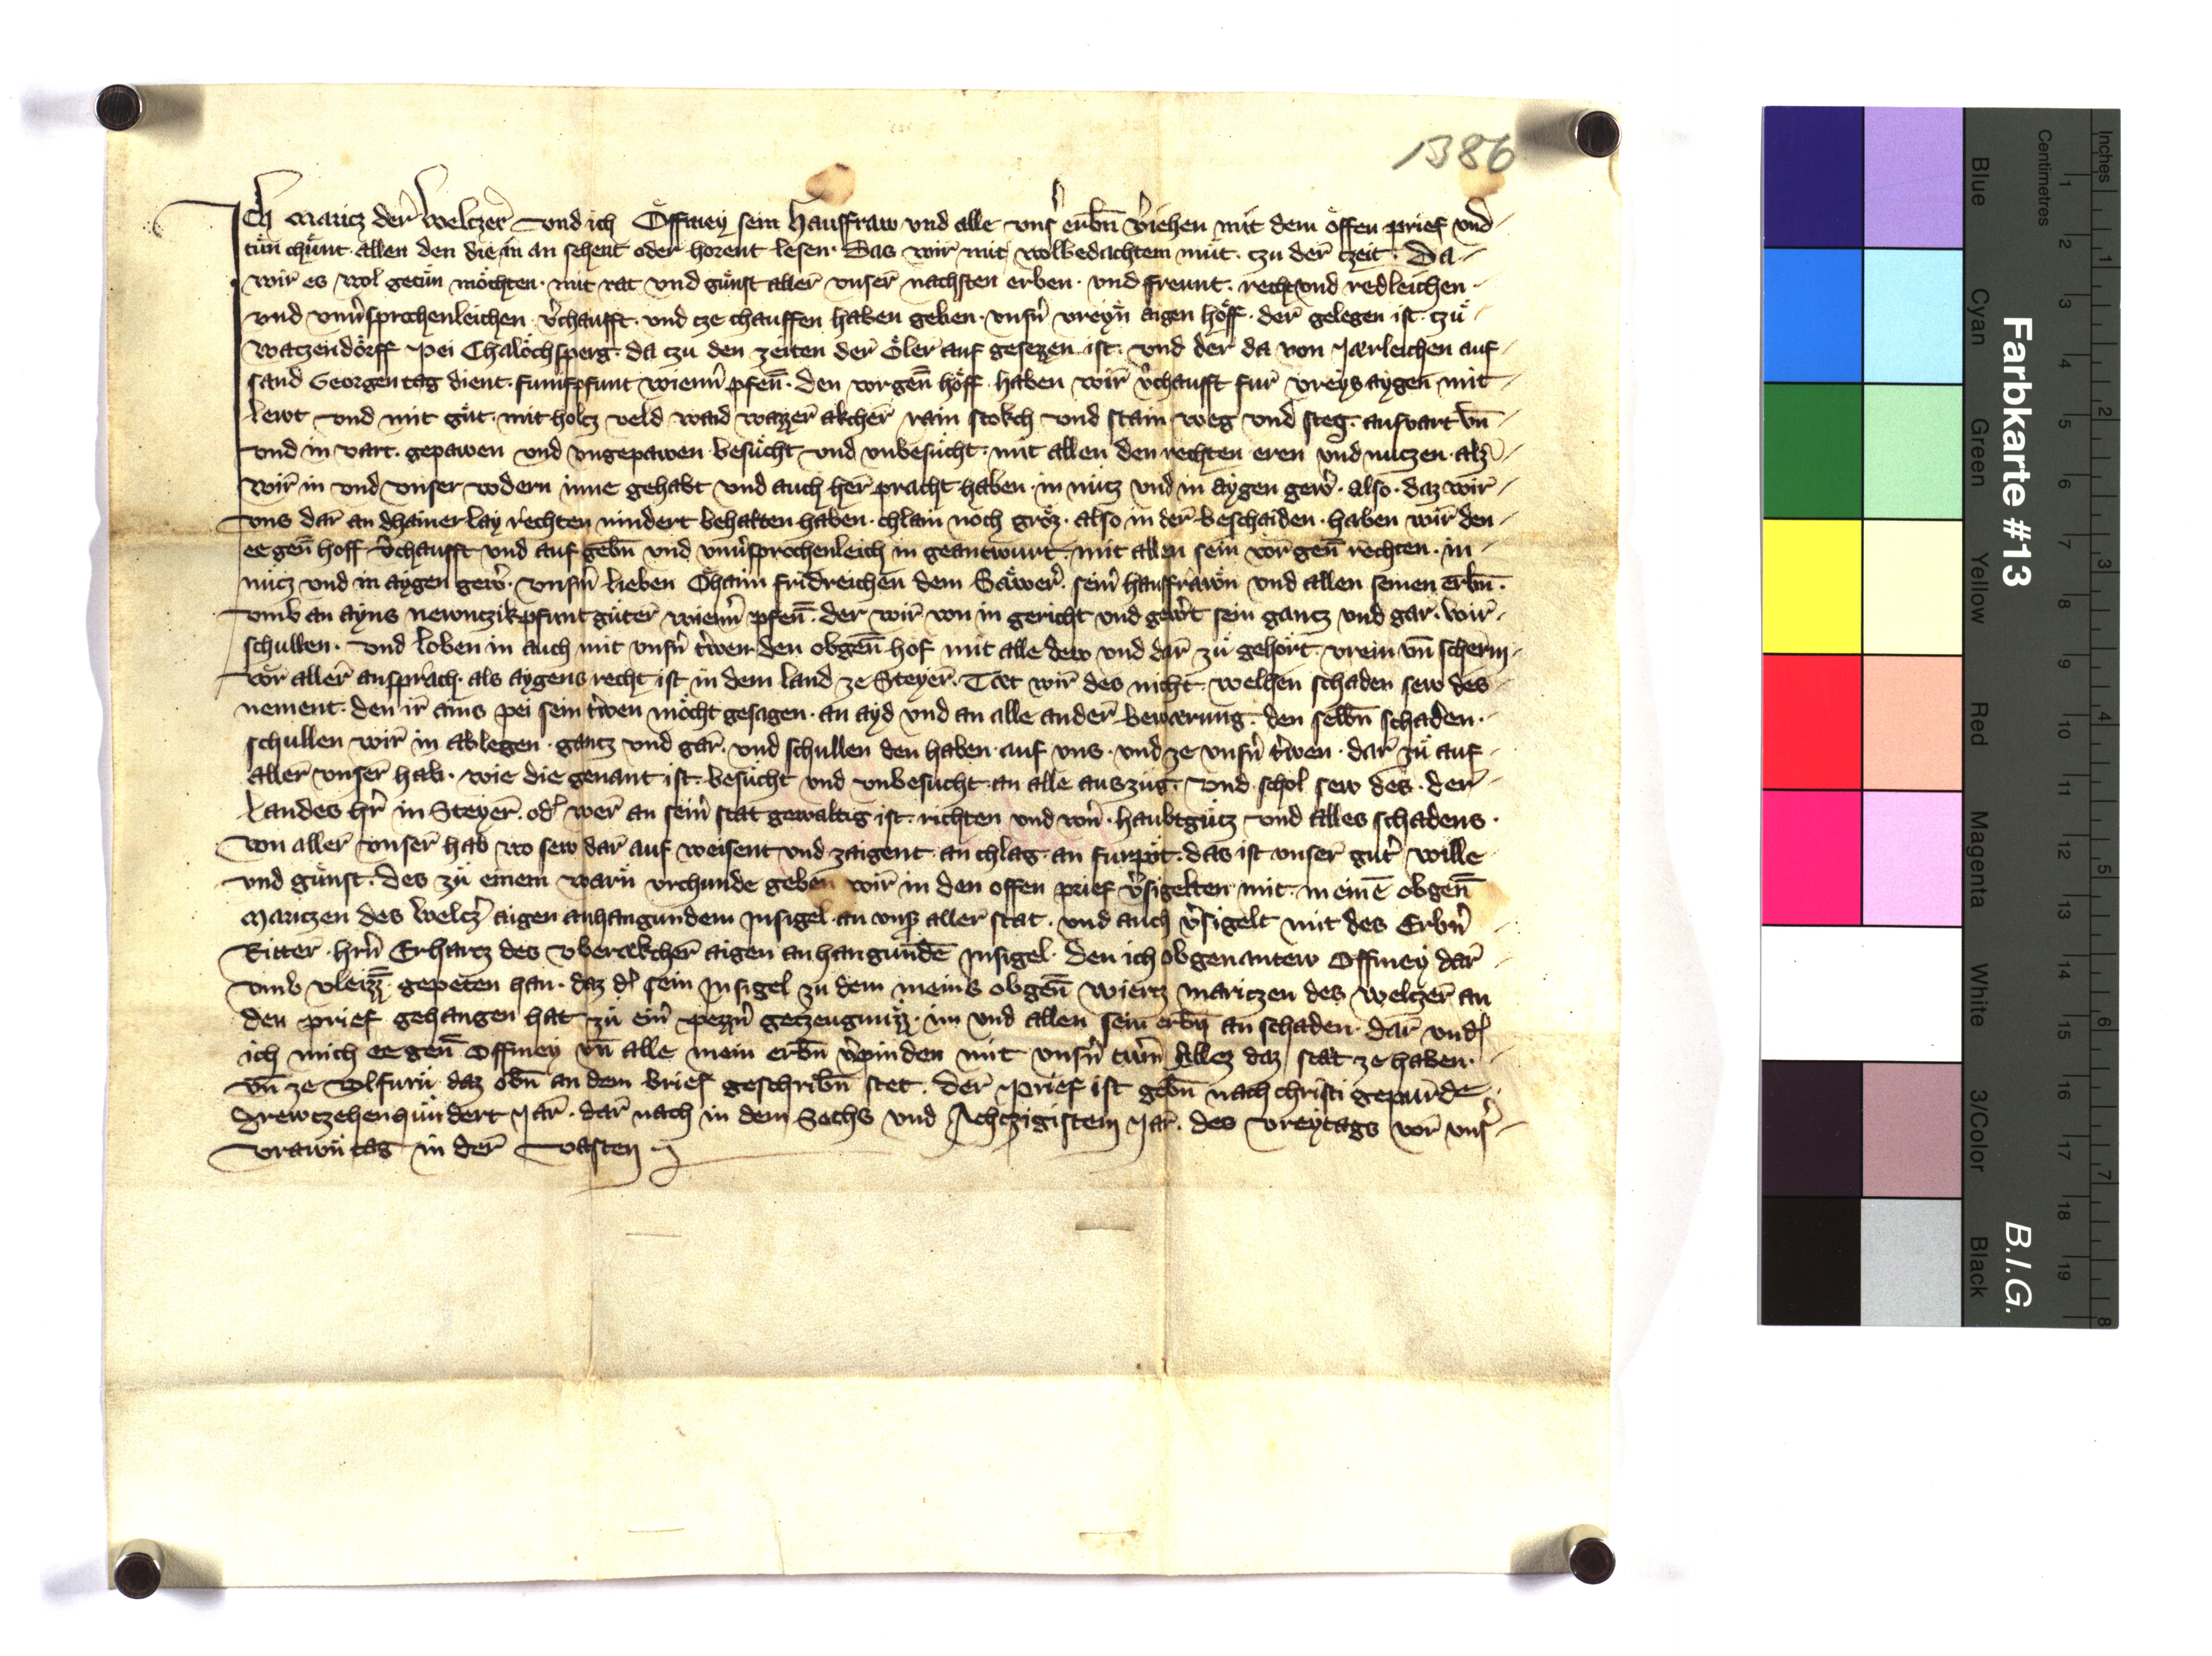 1386
Ich Maricz der Welczer vnd ich Offmey sein hausfraw vnd alle vnser erbn̄ v̓iehen mit dem offen prief vnd
tůn chůnt allen den die in an sehent oder horent lesen. Das wir mit wolbedachtem můt. czu der czeit. Da
wir es wol getůn möchten. mit rat vnd gůnst aller vnser nachsten erben. vnd freunt. recht vnd redleichen
vnd vnuersprochenleichen v̓chaufft. vnd cze chauffen haben geben. vnsn̓ vreyn̓ aigen hoff. der gelegen ist. czů
Waczendorff pei Chalochsperg. da czu den zeiten der Öler auf gesezzen ist. vnd der da von Jerleichen auf
sand Georgen tag dient. fumf pfunt wienn̓ pfen̄. den vorgen̄ hoff. haben wir v̓chaufft fur vreys aygen mit
lewt vnd mit gůt. mit holcz veld waid wazzer akcher rain stokch vnd stain weg vnd steg. aufuart vn̄
vnd in vart. gepawen vnd vngepawen besůcht vnd vnbesůcht. mit allen den rechten eren vnd nuczen. alz
wir in vnd vnser vodern inne gehabt vnd auch her pracht haben. in nucz vnd in aygen gew̓. also. daz wir
vns dar an dhainerlay rechten nindert behalten haben. chlain noch groz. also in der beschaiden. haben wir den
ee gen̄ hoff v̓chaufft vnd auf gebn̄ vnd vnuersprochenleich in geantwurt. mit allen sein vor gen̄ rechten. in
nucz vnd in aygen gew̓. vnsn̓ lieben Ohaim fridreichen dem Sawer̓. sein̓ hausfrawn vnd allen seinen erbn̄.
vmb an ayns newnczik pfunt guter wienn̓ pfen̄. der wir von in gericht vnd gew̓t sein gancz vnd gar. wir
schullen. vnd loben in auch mit vnsn̓ trewen den obgen̄ hof mit alle dew vnd dar zů gehört. vrein vn̄ scherm
vor aller ansprach. als aygens recht ist in dem land ze Steyer. Tet wir des nicht. welchen schaden sew des
nement. den ir ains pei sein trewen möcht gesagen. an ayd vnd an alle ander bewerung. den selbn̄ schaden.
schullen wir in ablegen. gancz vnd gar. vnd schullen den haben. auf vns. vnd ze vnsn̓ trewen. dar zů auf
aller vnser hab. wie die genant ist. besůcht vnd vnbesůcht. an alle auszůg. vnd schol sew des. der
landes hr̄ in Steyer. od̓ wer an sein̓ stat gewaltig ist. richten vnd wern̓. haubtgůcz vnd alles schadens.
von aller vnser hab wo sew dar auf weisent vnd zaigent. an chlag. an furpot. das ist vnser gut̓ wille
vnd gůnst. des zů einem warn̓ vrchunde geben wir in den offen prief v̓sigelten mit. meinē obgen̄
Mariczen des Welcz̓ aigen anhangundem Insigel. an vns aller stat. vnd auch v̓sigelt mit des Erbn̓
Ritter. hrn̓ Erharcz des Oberekcher aigen anhangundē Insigel. den ich obgenantew Offmey dar
vmb vleizz. gepeten han. daz d̓ sein Insigel zu dem meins obgen̄ wiercz mariczen des Welczer an
den prief gehangen hat zů ein̓ pezzn̓ geczeugnuzz. im vnd allen sein erbn̄ an schaden. dar vnd̓
ich mich ee gen̄ Offmey vn̄ alle mein erbn̄ v̓pinden mit vnsn̓ trewn̓ Allez daz stat ze haben.
vn̄ ze volfurn̓ daz obn̄ an dem brief geschribn̄ stet. der prief ist gebn̄ nach christi gepurde
drewczehenhůndert Jar. dar nach in dem Sechs vnd Achczigistem Jar. des vreytags vor vnser
vrawn̓ tag in der vasten
Farbkarte #13 B.I.G.
Inches 1 2 3 4 5 6 7 8
Centimetres 1 2 3 4 5 6 7 8 9 10 11 12 13 14 15 16 17 18 19
Blue Cyan Green Yellow Red Magenta White 3/Color Black